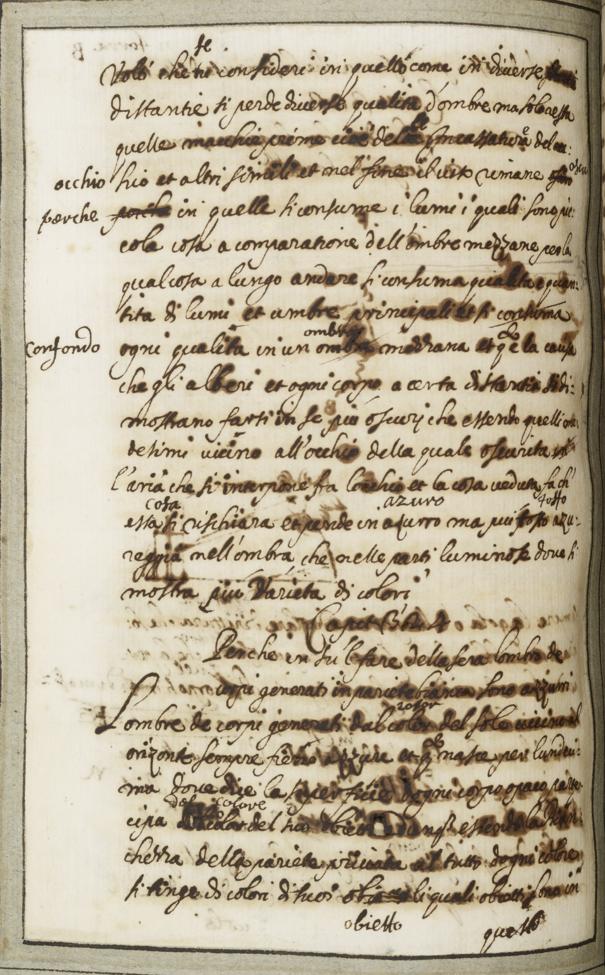 se
Volò che tu consideri in quello come in diverse
distantie si perde diverse qualità d'ombre ma solo resta
quelle macchie prime cioè della incassatura del oc:
occhio hio et altri simili et nel fine il viso rimane oscuro
perche in quelle si consume i lumi i quali sono pic:
cola cosa a comparatione dell'ombre mezzane per la
qual cosa a lungo andare si consuma qualità e quan:
tità di lumi et umbre principali et si consuma
confondo ogni qualità in un ombra mezzana et q.o è la causa
che gli alberi et ogni corpo a certa distantia si di:
mostrano farsi in se più oscuri che essendo quelli me
desimi vicino all'occhio della quale oscurità
l'aria che si interpone fra l'occhio et la cosa veduta fa ch'
essa cosa si rischiara et pende in azuro ma più tosto azu:
reggia nell'ombra che nelle parti luminose dove si
mostra più Varietà di colori
Capit
Perche in su'l fare della sera l'ombre de
corpi generati in pariete bianca sono azzurri
L'ombre de corpi generati dal rossor del sole vicino al
orizonte sempre fieno azzure et q.o nasce per l'undeci:
ma dove dice la superficie d'ogni corpo opaco parte
cipa del colore del suo obietto adunq. essendo la bian:
chezza della pariete privata al tutto d'ogni colore
si tinge di colori di suoi obietto li quali obietti sono in
questo